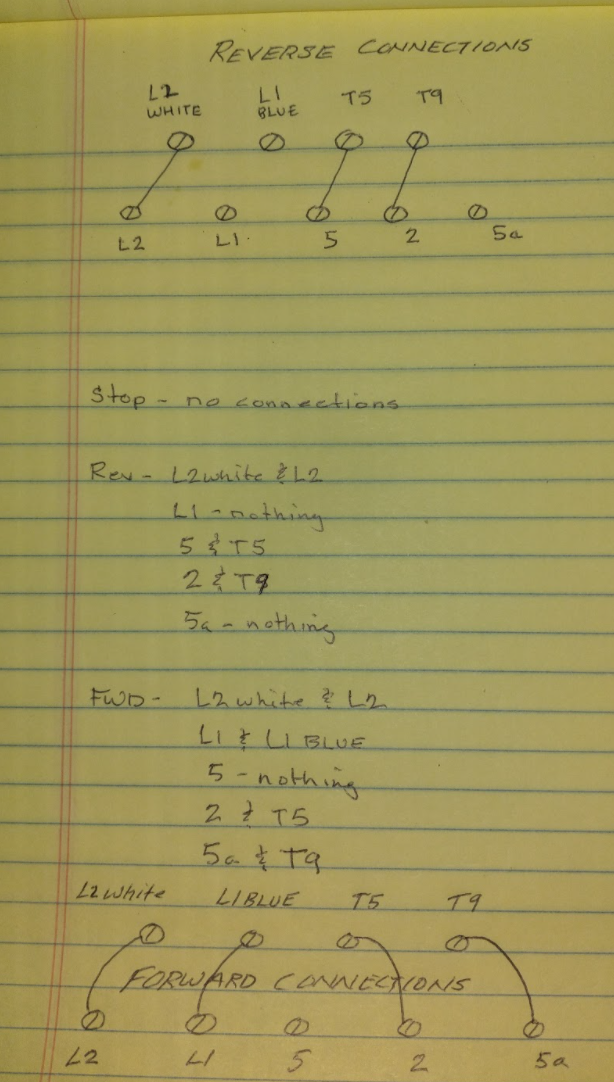 REVERSE CONNECTIONS
L2 L1 T5 T9
WHITE BLUE
L2 L1. 5 2 5a
Stop - no connections
Rev - L2 white & L2
L1 - nothing
5 & T5
2 & T9
5a - nothing
FWD - L2 white & L2
L1 & L1 BLUE
5 - nothing
2 & T5
5a & T9
L2 white L1 BLUE T5 T9
FORWARD CONNECTIONS
L2 L1 5 2 5a